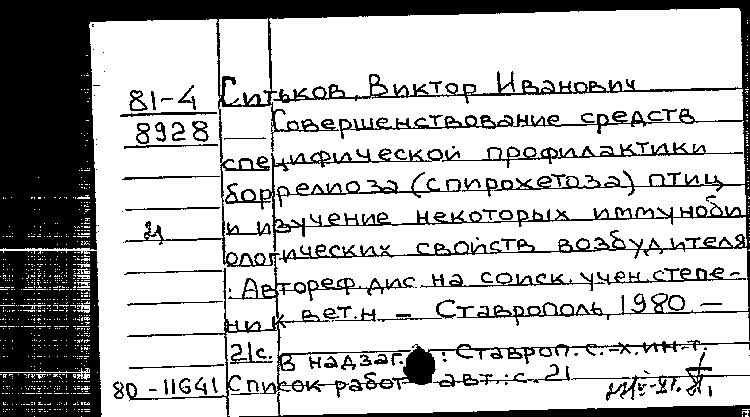 81-4 Ситьков, Виктор Иванович
8928 Совершенствование средств
специфической профилактики
боррелиоза (спирохетоза) птиц
и изучение некоторых иммуноби
ологических свойств возбудителя
: Автореф. дис. на соиск. учен. степе-
ни к. вет. н. — Ставрополь, 1980 —
21с. В надзаг.: Ставроп. с.-х. ин-т.
80-11641 Список работ авт.: с. 21